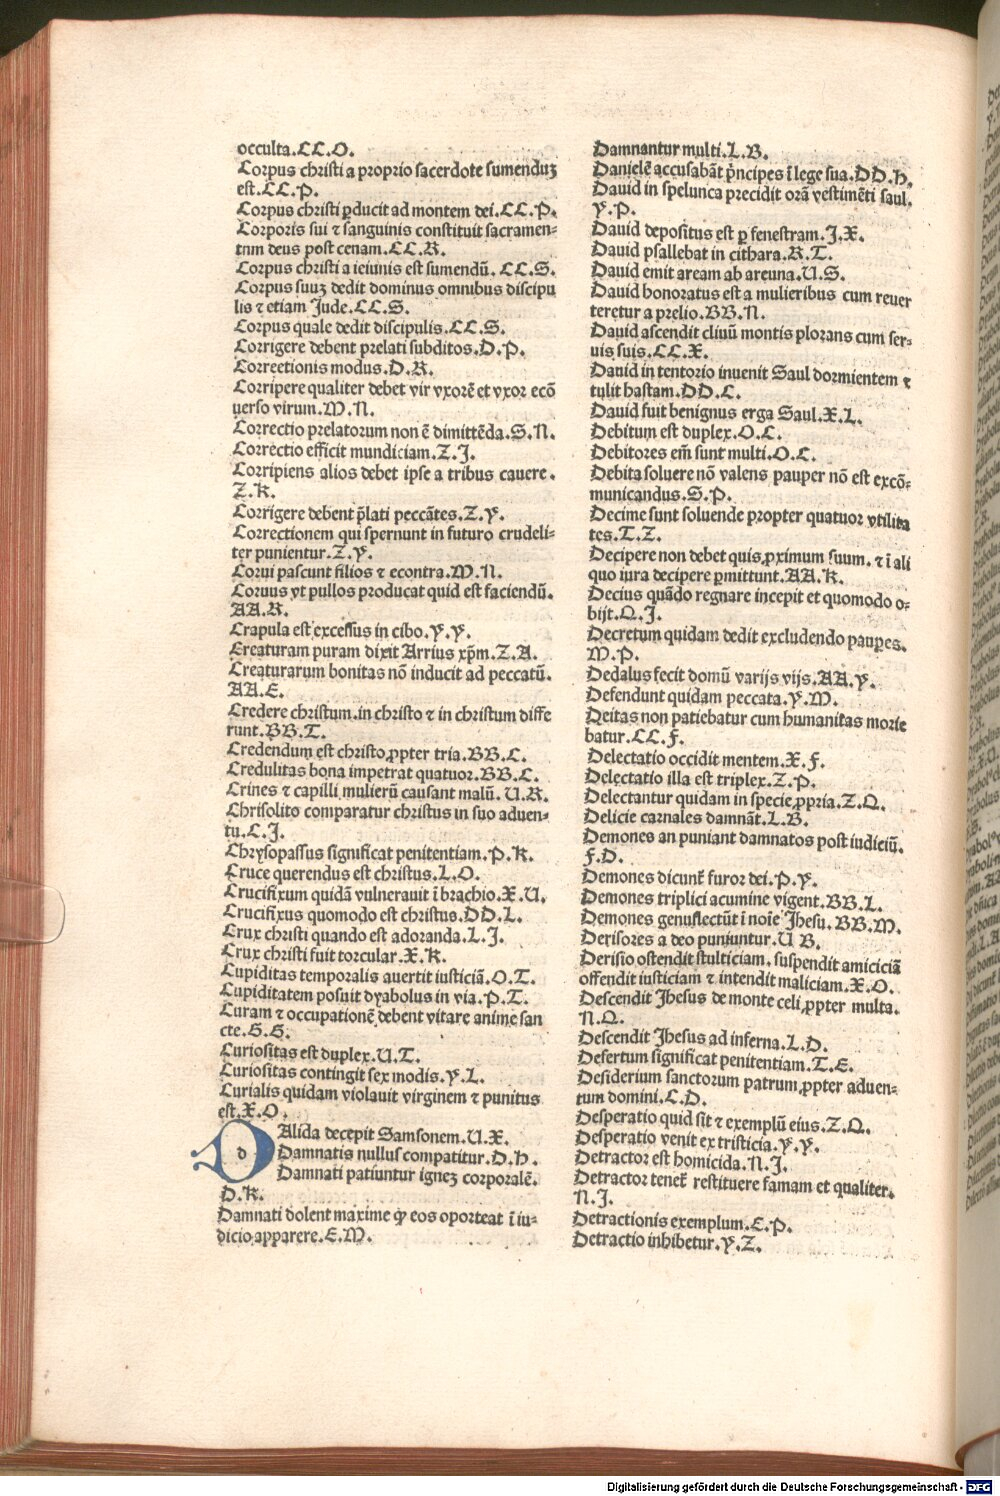 occulta.CC.O.
Corpus christi a proprio sacerdote sumenduꝫ
est.CC.P.
Corpus christi ꝑducit ad montem dei.CC.P.
Corporis sui ⁊ sanguinis constituit sacramen⸗
tnm deus post cenam.CC.R.
Corpus christi a ieiunis est sumendū.CC.S.
Corpus suuꝫ dedit dominus omnibus discipu
lis ⁊ etiam Jude.CC.S.
Corpus quale dedit discipulis.CC.S.
Corrigere debent prelati subditos.D.P.
Correctionis modus.D.R.
Corripere qualiter debet vir vxorē et vxor ecō
uerso virum.M.N.
Correctio prelatorum non ē dimittēda.S.N.
Correctio efficit mundiciam.Z.J.
Corripiens alios debet ipse a tribus cauere.
Z.K.
Corrigere debent p̄lati peccātes.Z.Y.
Correctionem qui spernunt in futuro crudeli⸗
ter punientur.Z.Y.
Corui pascunt filios ⁊ econtra.M.N.
Coruus vt pullos producat quid est faciendū.
AA.R.
Crapula est excessus in cibo.Y.Y.
Creaturam puram dixit Arrius xp̄m.Z.A.
Creaturarum bonitas nō inducit ad peccatū.
AA.E.
Credere christum.in christo ⁊ in christum diffe
runt.BB.T.
Credendum est christo ꝓpter tria.BB.C.
Credulitas bona impetrat quatuor.BB.C.
Crines ⁊ capilli mulierū causant malū.U.R.
Chrisolito comparatur christus in suo aduen⸗
tu.C.J.
Chrysopassus significat penitentiam.P.K.
Cruce querendus est christus.L.O.
Crucifixum quidā vulnerauit ī brachio.X.U.
Crucifixus quomodo est christus.DD.L.
Crux christi quando est adoranda.L.J.
Crux christi fuit torcular.X.K.
Cupiditas temporalis auertit iusticiā.O.T.
Cupiditatem posuit dyabolus in via.P.T.
Curam ⁊ occupationē debent vitare anime san
cte.G.G.
Curiositas est duplex.U.T.
Curiositas contingit sex modis.Y.L.
Curialis quidam violauit virginem ⁊ punitus
est.X.O.
DAlida decepit Samsonem.U.X.
Damnatis nullus compatitur.D.H.
Damnati patiuntur igneꝫ corporalē.
D.K.
Damnati dolent maxime ꝙ eos oporteat ī iu⸗
dicio apparere.E.M.
Damnantur multi.L.B.
Danielē accusabāt p̄ncipes ī lege sua.DD.H.
Dauid in spelunca precidit orā vestimēti saul.
Y.P.
Dauid depositus est ꝑ fenestram.J.X.
Dauid psallebat in cithara.R.T.
Dauid emit aream ab areuna.U.S.
Dauid honoratus est a mulieribus cum reuer
teretur a prelio.BB.N.
Dauid ascendit cliuū montis plorans cum ser⸗
uis suis.CC.X.
Dauid in tentorio inuenit Saul dormientem ⁊
tulit hastam.DD.C.
Dauid fuit benignus erga Saul.X.L.
Debitum est duplex.O.C.
Debitores em̄ sunt multi.O.C.
Debita soluere nō valens pauper nō est excō⸗
municandus.S.P.
Decime sunt soluende propter quatuor vtilita
tes.T.Z.
Decipere non debet quis ꝓximum suum. ⁊ ī ali
quo iura decipere ꝑmittunt.AA.K.
Decius quādo regnare incepit et quomodo o⸗
bijt.Q.J.
Decretum quidam dedit excludendo pauꝑes.
M.P.
Dedalus fecit domū varijs vijs.AA.Y.
Defendunt quidam peccata.Y.M.
Deitas non patiebatur cum humanitas morie
batur.CC.F.
Delectatio occidit mentem.X.F.
Delectatio illa est triplex.Z.P.
Delectantur quidam in specie ꝓpria.Z.Q.
Delicie carnales damnāt.L.B.
Demones an puniant damnatos post iudiciū.
F.D.
Demones dicunt᷑ furor dei.P.Y.
Demones triplici acumine vigent.BB.L.
Demones genuflectūt ī noīe Jhesu.BB.M.
Derisores a deo puniuntur.U B.
Derisio ostendit stulticiam. suspendit amiciciā
offendit iusticiam ⁊ intendit maliciam.X.O.
Descendit Jhesus de monte celi ꝓpter multa.
N.Q.
Descendit Jhesus ad inferna.L.D.
Desertum significat penitentiam.T.E.
Desiderium sanctorum patrum ꝓpter aduen⸗
tum domini.C.D.
Desperatio quid sit ⁊ exemplū eius.Z.Q.
Desperatio venit ex tristicia.Y.Y.
Detractor est homicida.N.J.
Detractor tenet᷑ restituere famam et qualiter.
N.J.
Detractionis exemplum.C.P.
Detractio inhibetur.Y.Z.
Digitalisierung gefördert durch die Deutsche Forschungsgemeinschaft - DFG